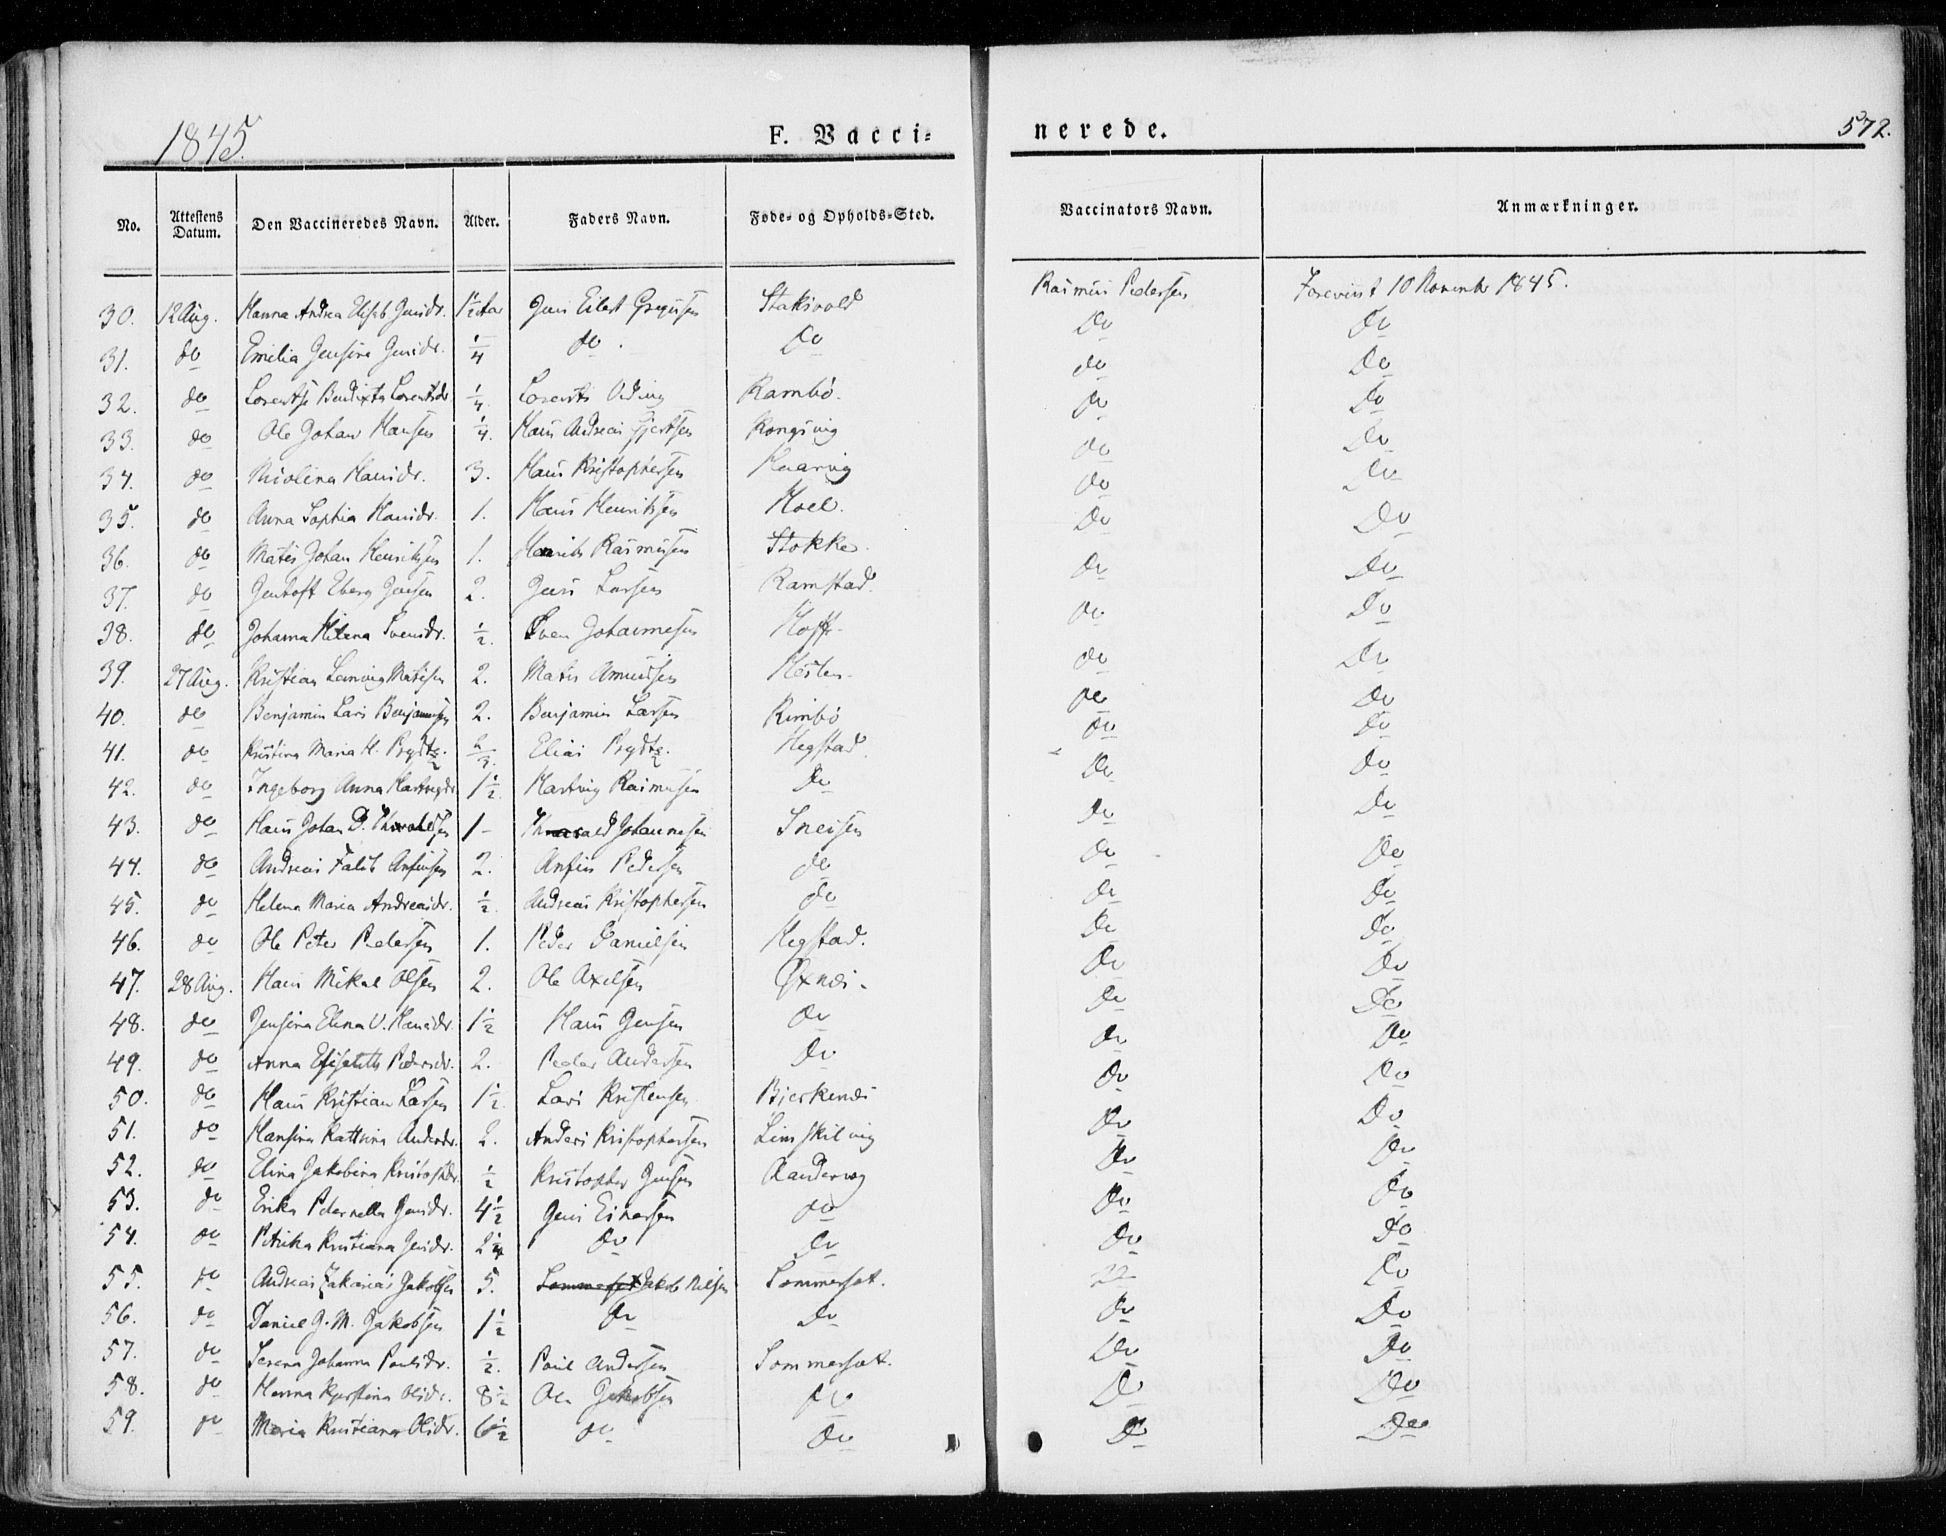 1845.
F. Vacci-
nerede.
572.
No. Attestens Datum. Den Vaccineredes Navn. Alder. Faders Navn. Føde- og Opholds-Sted. Vaccinators Navn. Anmærkninger.
30. 12 Aug. Hanna Andrea Jensdr. 1½ Aar Jens Eilert Greg Staksvold Rasmus Pedersen Foreviist 10 November 1845.
31. do Emilia Jensine Jensdr. ¼ do. Do Do Do
32. do Lorentse Bendixta Lorentsdr. ¼ Lorents Oding Rambø. do Do
33. do Ole Johan Hansen ¼. Hans Andreas Gjertsen Kongsvig do Do
34. do Nicolina Hansdr. 3. Hans Kristophersen Haarvig do Do
35. do Anna Sophia Hansdr. 1. Hans Henriksen Hoel. do Do
36. do Mathis Johan Henriksen 1. Henrik Rasmussen Stokke. Do Do
37. do Gentoft Eberg Jensen 2. Jens Larsen Ramstad. Do Do
38. do Johanna Helena Svensdr. ½ Sven Johannesen Hoff. do Do
39. 27 Aug. Kristian Mathisen 2. Mathis Amundsen do Do
40. do Benjamin Lars Benjaminsen 2. Benjamin Larsen Rimbø do Do
41. do Kristina Maria H. Prydtz. ⅔. Elias Prydtz. Hegstad do Do
42. do Ingeborg Anna Hartvigdr. 1½. Hartvig Rasmusen Do Do Do
43. do Hans Johan D. Thorvaldsen 1- Thorvald Johannesen Sneisen Do Do
44. do Andreas Falch Anfinsen 2. Anfin Pedersen do Do Do
45. do Helena Maria Andreasdr. ½. Andreas Kristophersen do Do Do
46. do Ole Peter Pedersen 1. Peder Danielsen Hegstad. Do Do
47. 28 Aug. Hans Mikal Olsen 2. Ole Axelsen Øxnæs. Do Do
48. do Jensina Elina V. Hansdr. 1½ Hans Jensen Do Do Do
49. do Anna Elisabeth Pedersdr. 2. Peder Andersen Do Do Do
50. do Hans Kristian Larsen 1½. Lars Kristensen Bjerkenæs Do Do
51. do Hansina Kathrina Andersdr. 2. Anders Kristophersen Do Do
52. do Elina Jakobina Kristophdr. ½ Kristopher Jensen Do Do
53. do Erika Peternella Jensdr. 4½ Jens Einersen do Do Do
54. do Petrika Kristiana Jensdr. 2¼ Do Do Do Do
55. do Andreas Zakarias Jakobsen 5. Jakob Nilsen Sommerset. Do Do
56. do Daniel J. M. Jakobsen 1½ Do Do Do Do
57. do Serena Johanna Paulsdr. ½. Paul Andersen Sommerset. Do Do
58. do Hanna Kjerstina Olsdr. 8½ Ole Jakobsen Do Do Do
59. do Maria Kristiana Olsdr. 6½ do Do Do Do